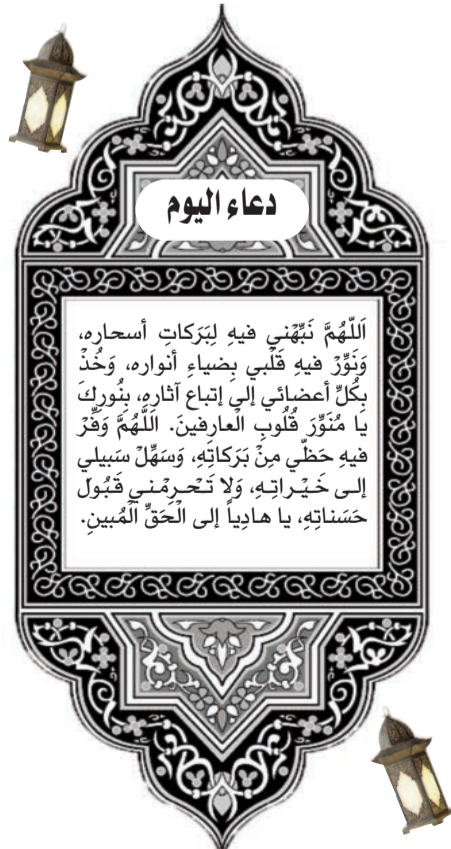 دعاء اليوم
اَللّهُمَّ نَبِّهْني فيهِ لِبَرَكاتِ أسحاره،
وَنَوِّرْ فيهِ قَلْبي بِضياءِ أنواره، وَخُذْ
بِكُلِّ أعضائي إلى إتباع آثارهِ، بِنُورِكَ
يا مُنَوِّرَ قُلُوبِ الْعارِفينَ. اَللّهُمَّ وَفِّرْ
فيهِ حَظّي مِنْ بَرَكاتِهِ، وَسَهِّلْ سَبيلي
إلى خَيْراتِهِ، وَلا تَحْرِمْني قَبُول
حَسَناتِهِ، يا هادِياً إلى الْحَقِّ الْمُبينِ.